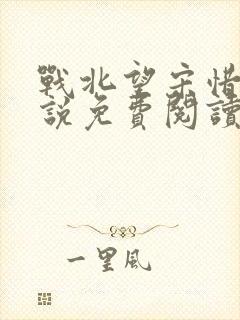 戰北望宋惜
說免費閱讀
一里風